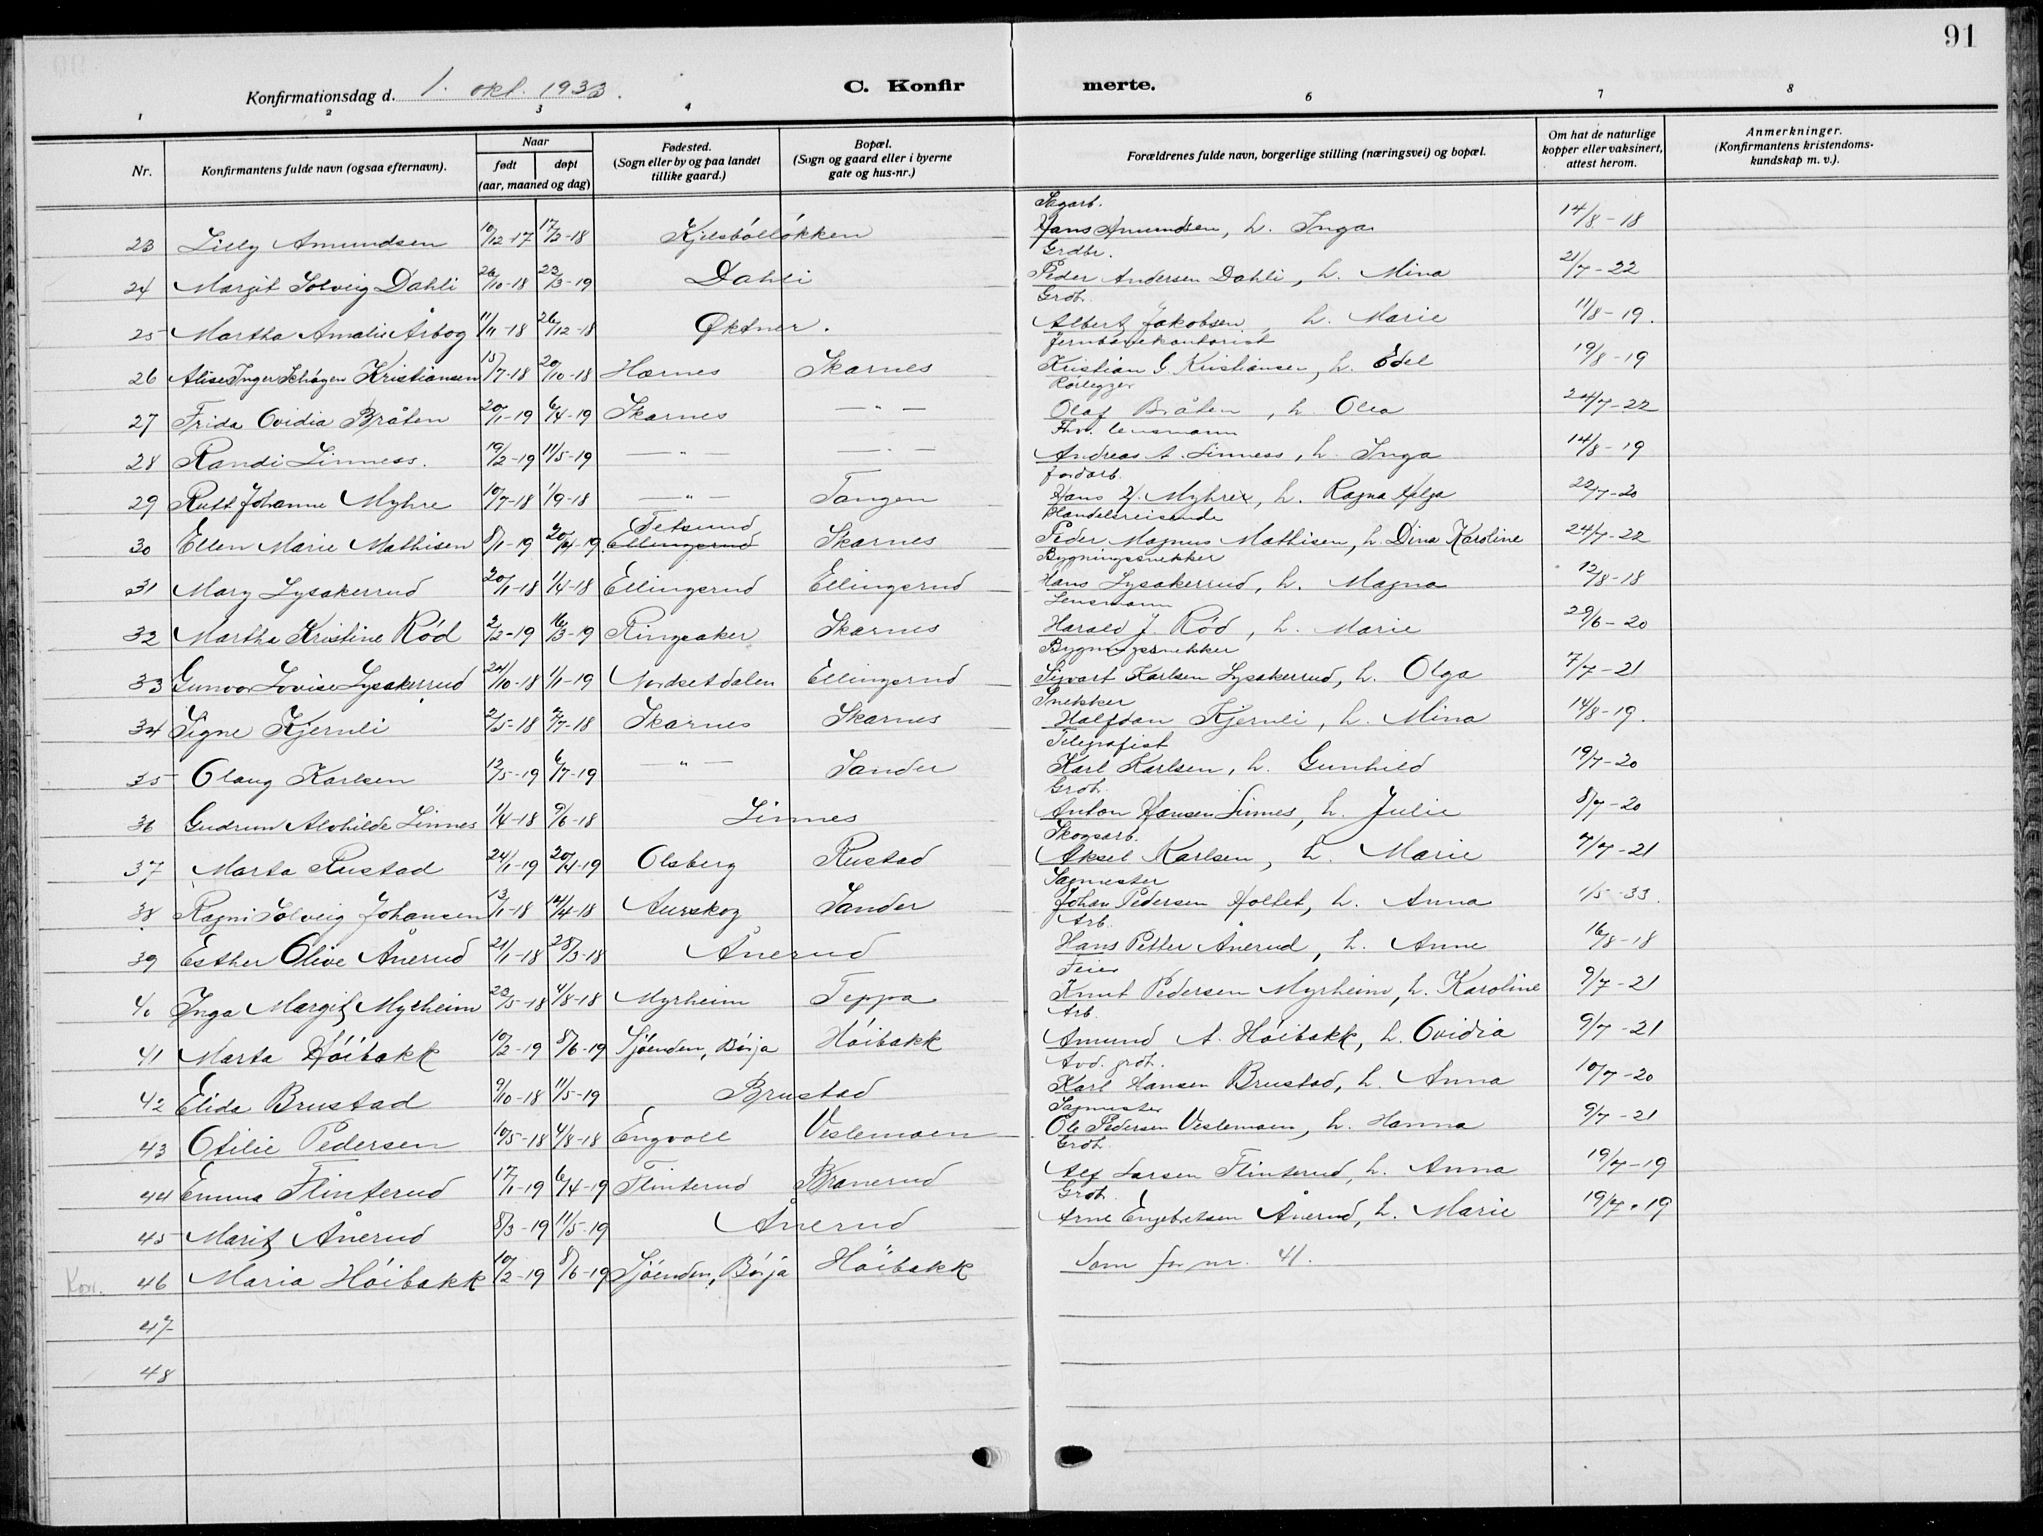 91
Konfirmationsdag d. 1. okt. 1933.
C. Konfirmerte.
1 2 3 4 6 7 8
Nr. Konfirmantens fulde navn (ogsaa efternavn). Naar født døpt (aar, maaned og dag) Fødested. (Sogn eller by og paa landet tillike gaard.) Bopæl. (Sogn og gaard eller i byerne gate og hus-nr.) Forældrenes fulde navn, borgerlige stilling (næringsvei) og bopæl. Om hat de naturlige kopper eller vaksinert, attest herom. Anmerkninger. (Konfirmantens kristendomskundskap m. v.).
Sagarb.
23 Lilly Amundsen 10/12-17 17/2-18 Kjelsbólløkken Hans Amundsen, h. Inga 14/8-18
Grdbr.
24 Margit Solveig Dahli 26/10-18 23/3-19 Dahli Peder Andersen Dahli, h. Mina 21/7-22
Grdb.
25 Martha Amalie Årbog 11/11-18 26/12-18 Øktner. Albert Jakobsen, h. Marie 11/8-19.
Jernbanekontorist
26 Alise Inger Schøyen Kristiansen 15/7-18 20/10-18 Hærnes Skarnes Kristian G Kristiansen, h. Edel 19/8-19
Rørlegger
27 Frida Ovidia Bråten 20/1-19 6/4-19 Skarnes — " — Olaf Bråten, h. Olea 24/7-22
Fhv. lensmann
28 Randi Linness. 19/2-19 11/5-19 — " — — " — Andreas A. Linness, h. Inga 14/8-19
Jordarb.
29 Rutt Johanne Myhre 10/7-18 1/9-18 — " — Tangen Hans H. Myhre, h. Ragna Helga 22/7-20
Handelsreisende
30 Ellen Marie Mathisen 8/1-19 20/4-19 Fetsund Ellingsrud Skarnes Peder Magnus Mathisen, h. Dina Karoline 24/7-22
Bygningssnekker
31 Mary Lysakerrud 20/1-18 1/4-18 Ellingsrud Ellingsrud Hans Lysakerrud, h. Magna 12/8-18
Lensmann
32 Martha Kristine Rød 2/2-19 16/3-19 Ringsaker Skarnes Harald J. Rød, h. Marie 29/6-20
Bygningssnekker
33 Gunvor Lovise Lysakerrud 24/10-18 1/1-19 Nordsetdalen Ellingsrud Sigvart Karlsen Lysakerrud, h. Olga 7/7-21
Snekker
34 Signe Kjernli 2/5-18 7/7-18 Skarnes Skarnes Halfdan Kjernli, h. Mina 14/8-19.
Telegrafist
35 Olaug Karlsen 12/5-19 6/7-19 — " — Sander Karl Karlsen, h. Gunhild 19/7-20
Grdb.
36 Gudrun Alvhilde Linnes 1/4-18 9/6-18 Linnes Anton Hansen Linnes, h. Julie 8/7-20
Skogsarb.
37 Marta Rustad 24/1-19 20/4-19 Olsberg Rustad Aksel Karlsen, h. Marie 7/7-21
Sagmester
38 Ragni Solveig Johansen 13/1-18 14/4-18 Aurskog Sander Johan Pedersen Holtet, h. Anna 1/5-33.
Arb.
39 Esther Olive Ånerud 21/1-18 28/3-18 Ånerud Hans Petter Ånerud, h. Anne 16/8-18
Feier
40 Inga Margit Myrheim 23/5-18 4/8-18 Myrheim Teppa Knut Pedersen Myrheim, h. Karoline 9/7-21
Arb.
41 Marta Høibakk 10/2-19 8/6-19 Sjøenden, Børja Høibakk Amund A. Høibakk, h. Ovidia 9/7-21
Avd. grdb.
42 Elida Brustad 9/10-18 11/5-19 Brustad Karl Hansen Brustad, h. Anna 10/7-20
Sagmester
43 Otilie Pedersen 10/5-18 4/8-18 Engvoll Veslemoen Ole Pedersen Veslemoen, h. Hanna 9/7-21
Grdb.
44 Emma Flinterud 17/1-19 6/4-19 Flinterud Branerud Alf Larsen Flinterud, h. Anna 19/7-19
Grdb.
45 Marit Ånerud 8/3-19 11/5-19 Ånerud Arne Engebretsen Ånerud, h. Marie 19/7-19
Kon. 46 Maria Høibakk 10/2-19 8/6-19 Sjøenden, Børja Høibakk Som for nr. 41.
47
48